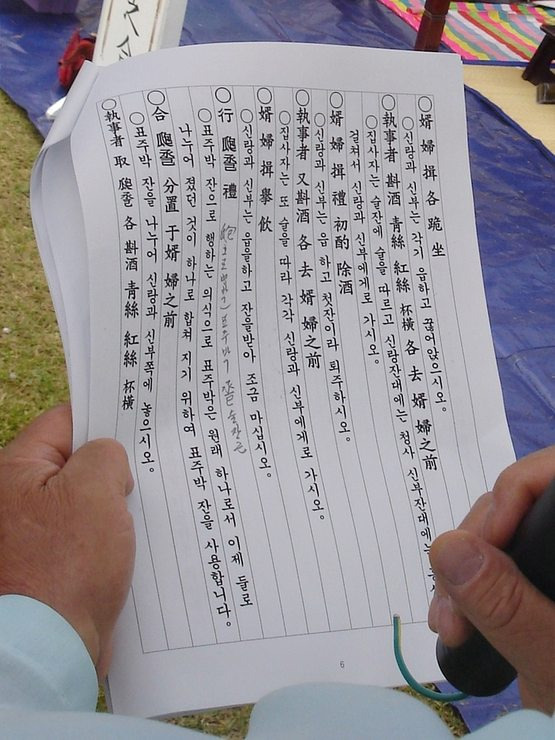 ○ 婿婦揖各跪坐
○ 신랑과 신부는 각기 읍하고 꿇어앉으시오.
○ 執事者 斟酒 靑絲 紅絲 杯橫 各去 婿婦之前
○ 집사자는 술잔에 술을 따르고 신랑잔대에는 청사 신부잔대에는
걸쳐서 신랑과 신부에게로 가시오.
○ 婿婦揖禮 初酌 除酒
○ 신랑과 신부는 읍하고 첫잔이라 퇴주하시오.
○ 執事者 又斟酒 各去 婿婦之前
○ 집사자는 또 술을 따라 각각 신랑과 신부에게로 가시오.
婿婦揖擧飮
○ 신랑과 신부는 읍을하고 잔을받아 조금 마십시오.
○ 行 巹禮
○ 표주박 잔으로 행하는 의식으로 표주박은 원래 하나로서 이제 둘로
나누어 졌던 것이 하나로 합쳐 지기 위하여 표주박 잔을 사용합니다.
○ 合 巹 分置于婿婦之前
○ 표주박 잔을 나누어 신랑과 신부쪽에 놓으시오.
○ 執事者 取 巹 各斟酒 靑絲 紅絲 杯橫
6